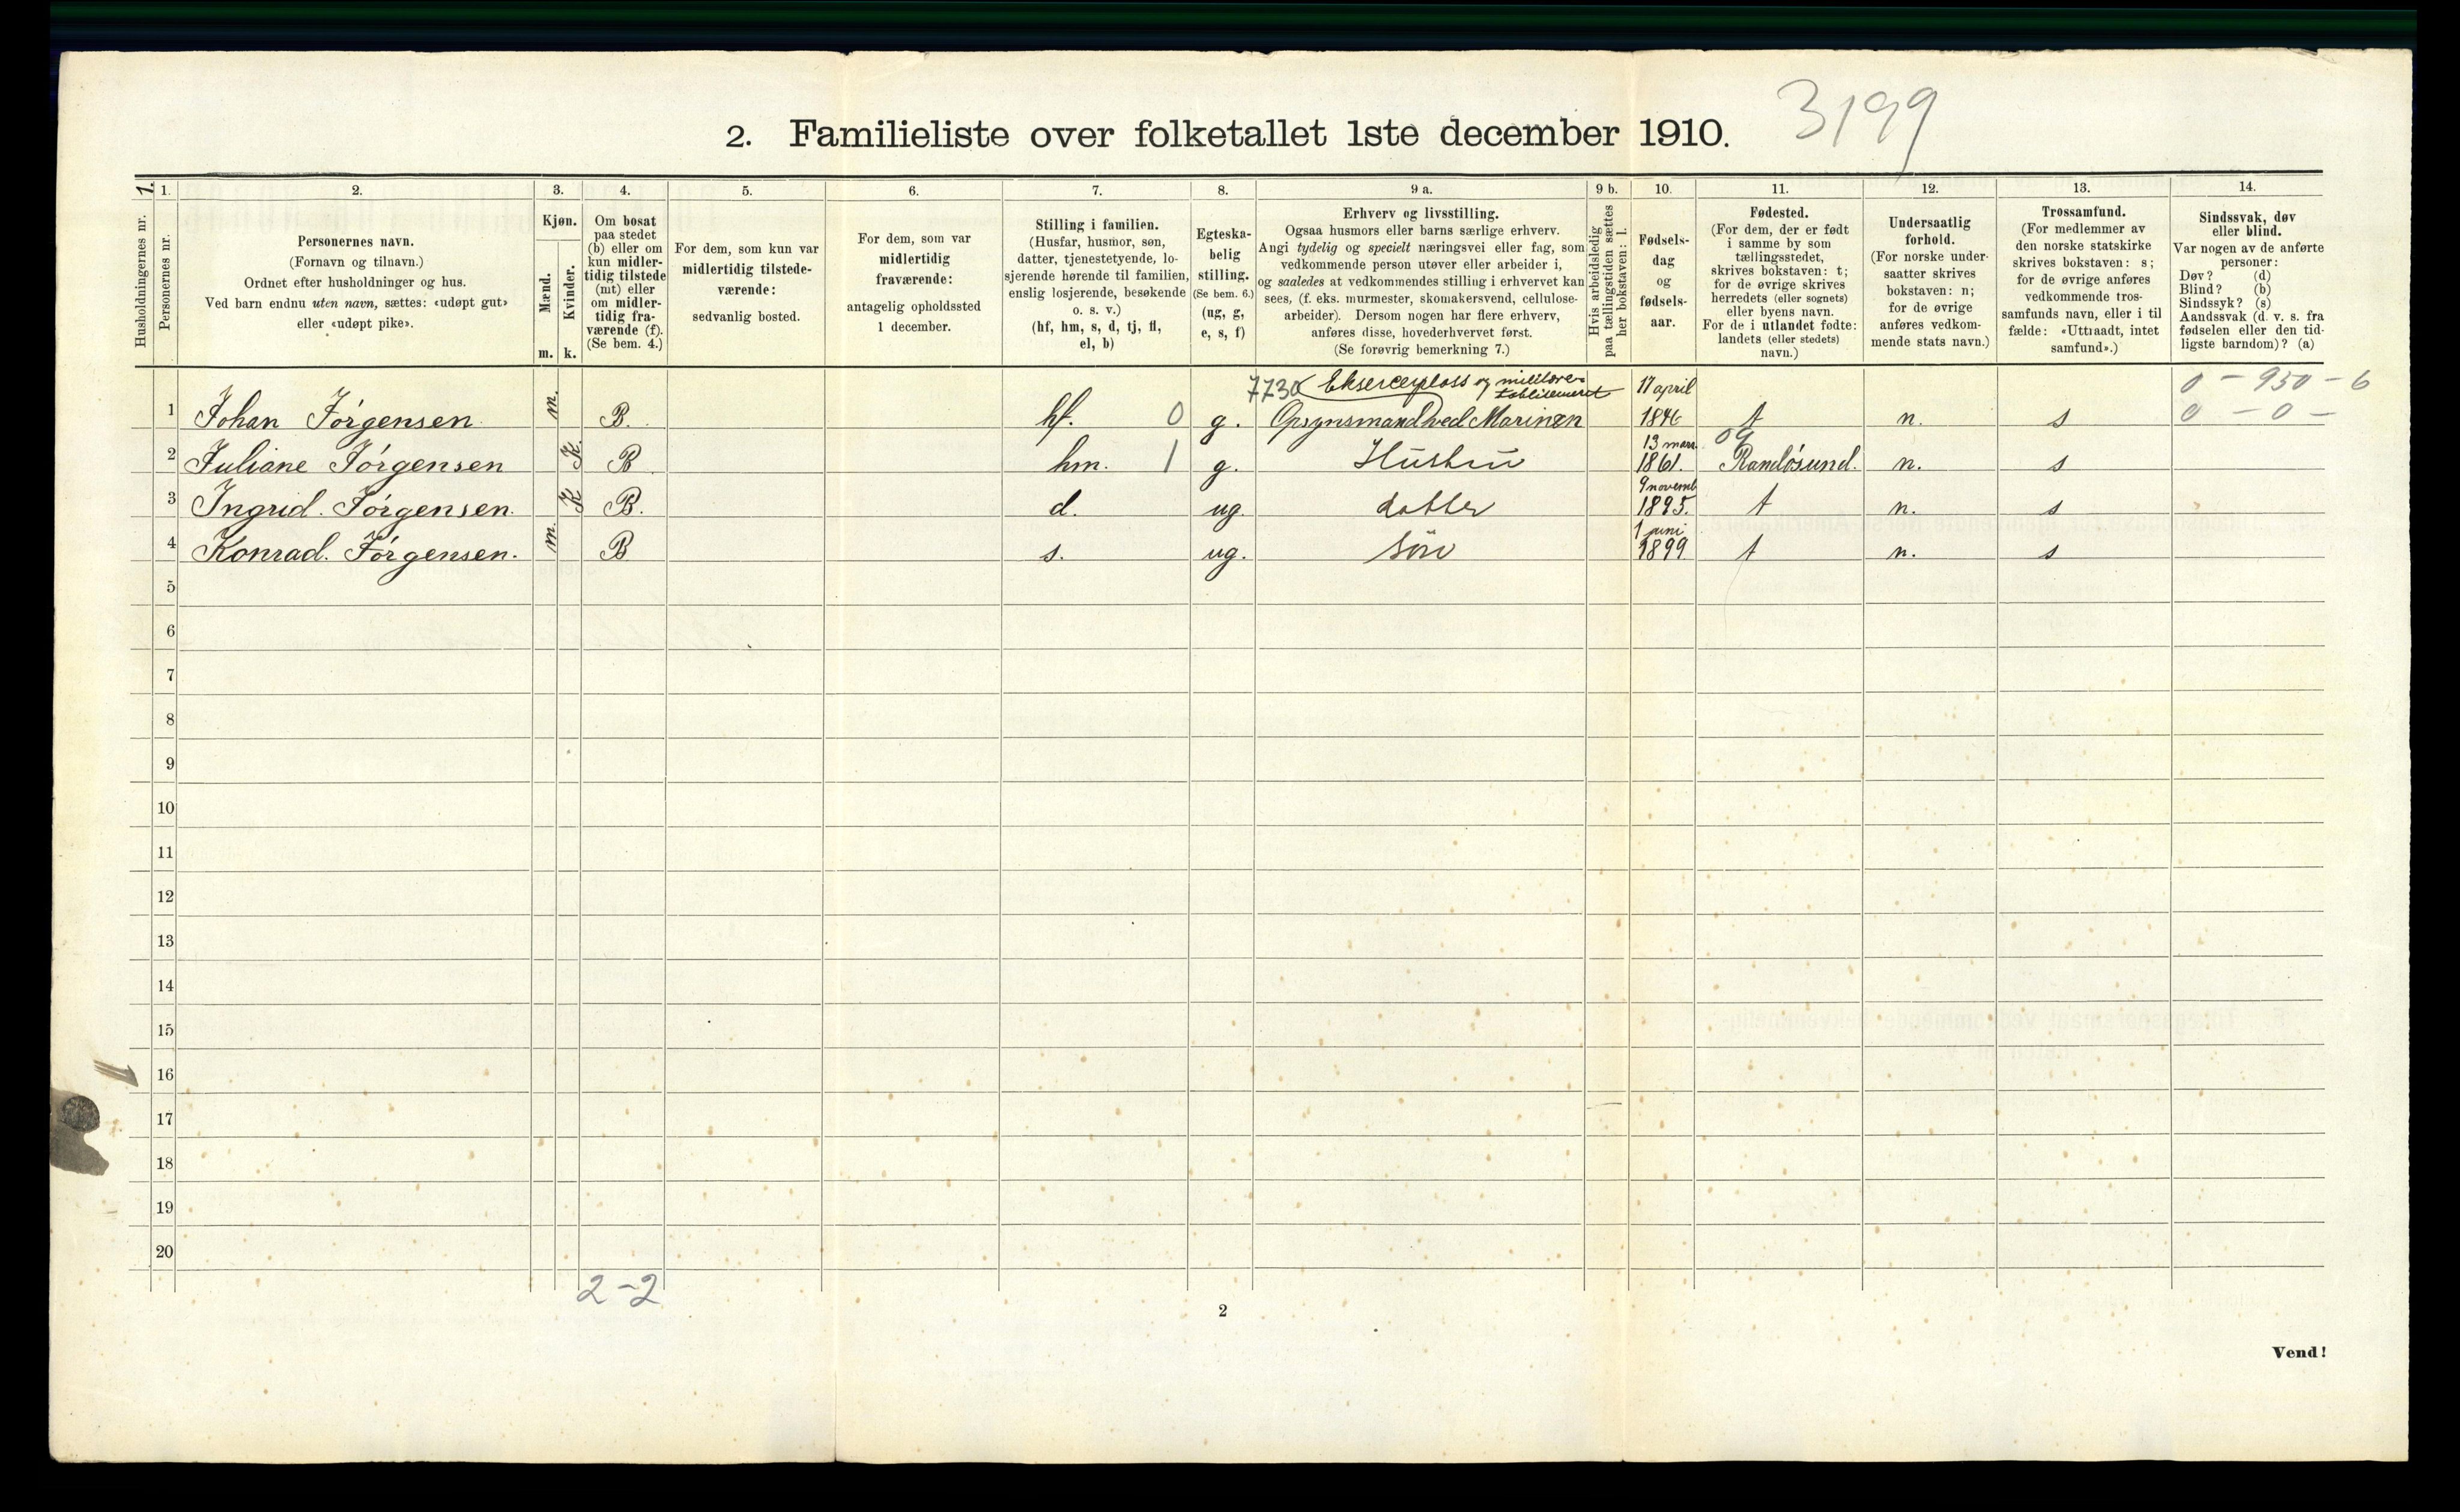 2. Familieliste over folketallet 1ste december 1910. 3199
1. 1. 2. 3. 4. 5. 6. 7. 8. 9 a. 9 b. 10. 11. 12. 13. 14.
Husholdningernes nr.
Personernes nr.
Personernes navn.
(Fornavn og tilnavn.)
Ordnet efter husholdninger og hus.
Ved barn endnu uten navn, sættes: «udøpt gut»
eller «udøpt pike».
Kjøn.
Mænd.
Kvinder.
m. k.
Om bosat
paa stedet
(b) eller om
kun midler-
tidig tilstede
(mt) eller
om midler-
tidig fra-
værende (f).
(Se bem. 4.)
For dem, som kun var
midlertidig tilstede-
værende:
sedvanlig bosted.
For dem, som var
midlertidig
fraværende:
antagelig opholdssted
1 december.
Stilling i familien.
(Husfar, husmor, søn,
datter, tjenestetyende, lo-
sjerende hørende til familien,
enslig losjerende, besøkende
o. s. v.)
(hf, hm, s, d, tj, fl,
el, b)
Egteska-
belig
stilling.
(Se bem. 6.)
(ug, g,
e, s, f)
Erhverv og livsstilling.
Ogsaa husmors eller barns særlige erhverv.
Angi tydelig og specielt næringsvei eller fag, som
vedkommende person utøver eller arbeider i,
og saaledes at vedkommendes stilling i erhvervet kan
sees, (f. eks. murmester, skomakersvend, cellulose-
arbeider). Dersom nogen har flere erhverv,
anføres disse, hovederhvervet først.
(Se forøvrig bemerkning 7.)
Hvis arbeidsledig
paa tællingstiden sættes
her bokstaven: l.
Fødsels-
dag
og
fødsels-
aar.
Fødested.
(For dem, der er født
i samme by som
tællingsstedet,
skrives bokstaven: t;
for de øvrige skrives
herredets (eller sognets)
eller byens navn.
For de i utlandet fødte:
landets (eller stedets)
navn.)
Undersaatlig
forhold.
(For norske under-
saatter skrives
bokstaven: n;
for de øvrige
anføres vedkom-
mende stats navn.)
Trossamfund.
(For medlemmer av
den norske statskirke
skrives bokstaven: s;
for de øvrige anføres
vedkommende tros-
samfunds navn, eller i til
fælde: «Uttraadt, intet
samfund».)
Sindssvak, døv
eller blind.
Var nogen av de anførte
personer:
Døv? (d)
Blind? (b)
Sindssyk? (s)
Aandssvak (d. v. s. fra
fødselen eller den tid-
ligste barndom)? (a)
7730 Ekserceerplass og militære 17 april 0 - 950 - 6
Etablisement
1 Johan Jörgensen m. B. hf. 0 g. Opsynsmand ved Marinen 1846 t n. s 0 - 0 -
13 mars 09
2 Juliane Jörgensen K. B hm. 1 g. Hustru 1861. Randösund. n. s
9 novemb
3 Ingrid. Jörgensen. K B. d. ug. datter 1895. t n. s
1 juni
4 Konrad. Jörgensen. m. B s. ug. sön 1899. t n. s
5
6
7
8
9
10
11
12
13
14
15
16
17
18
19
20
2-2
2
Vend!